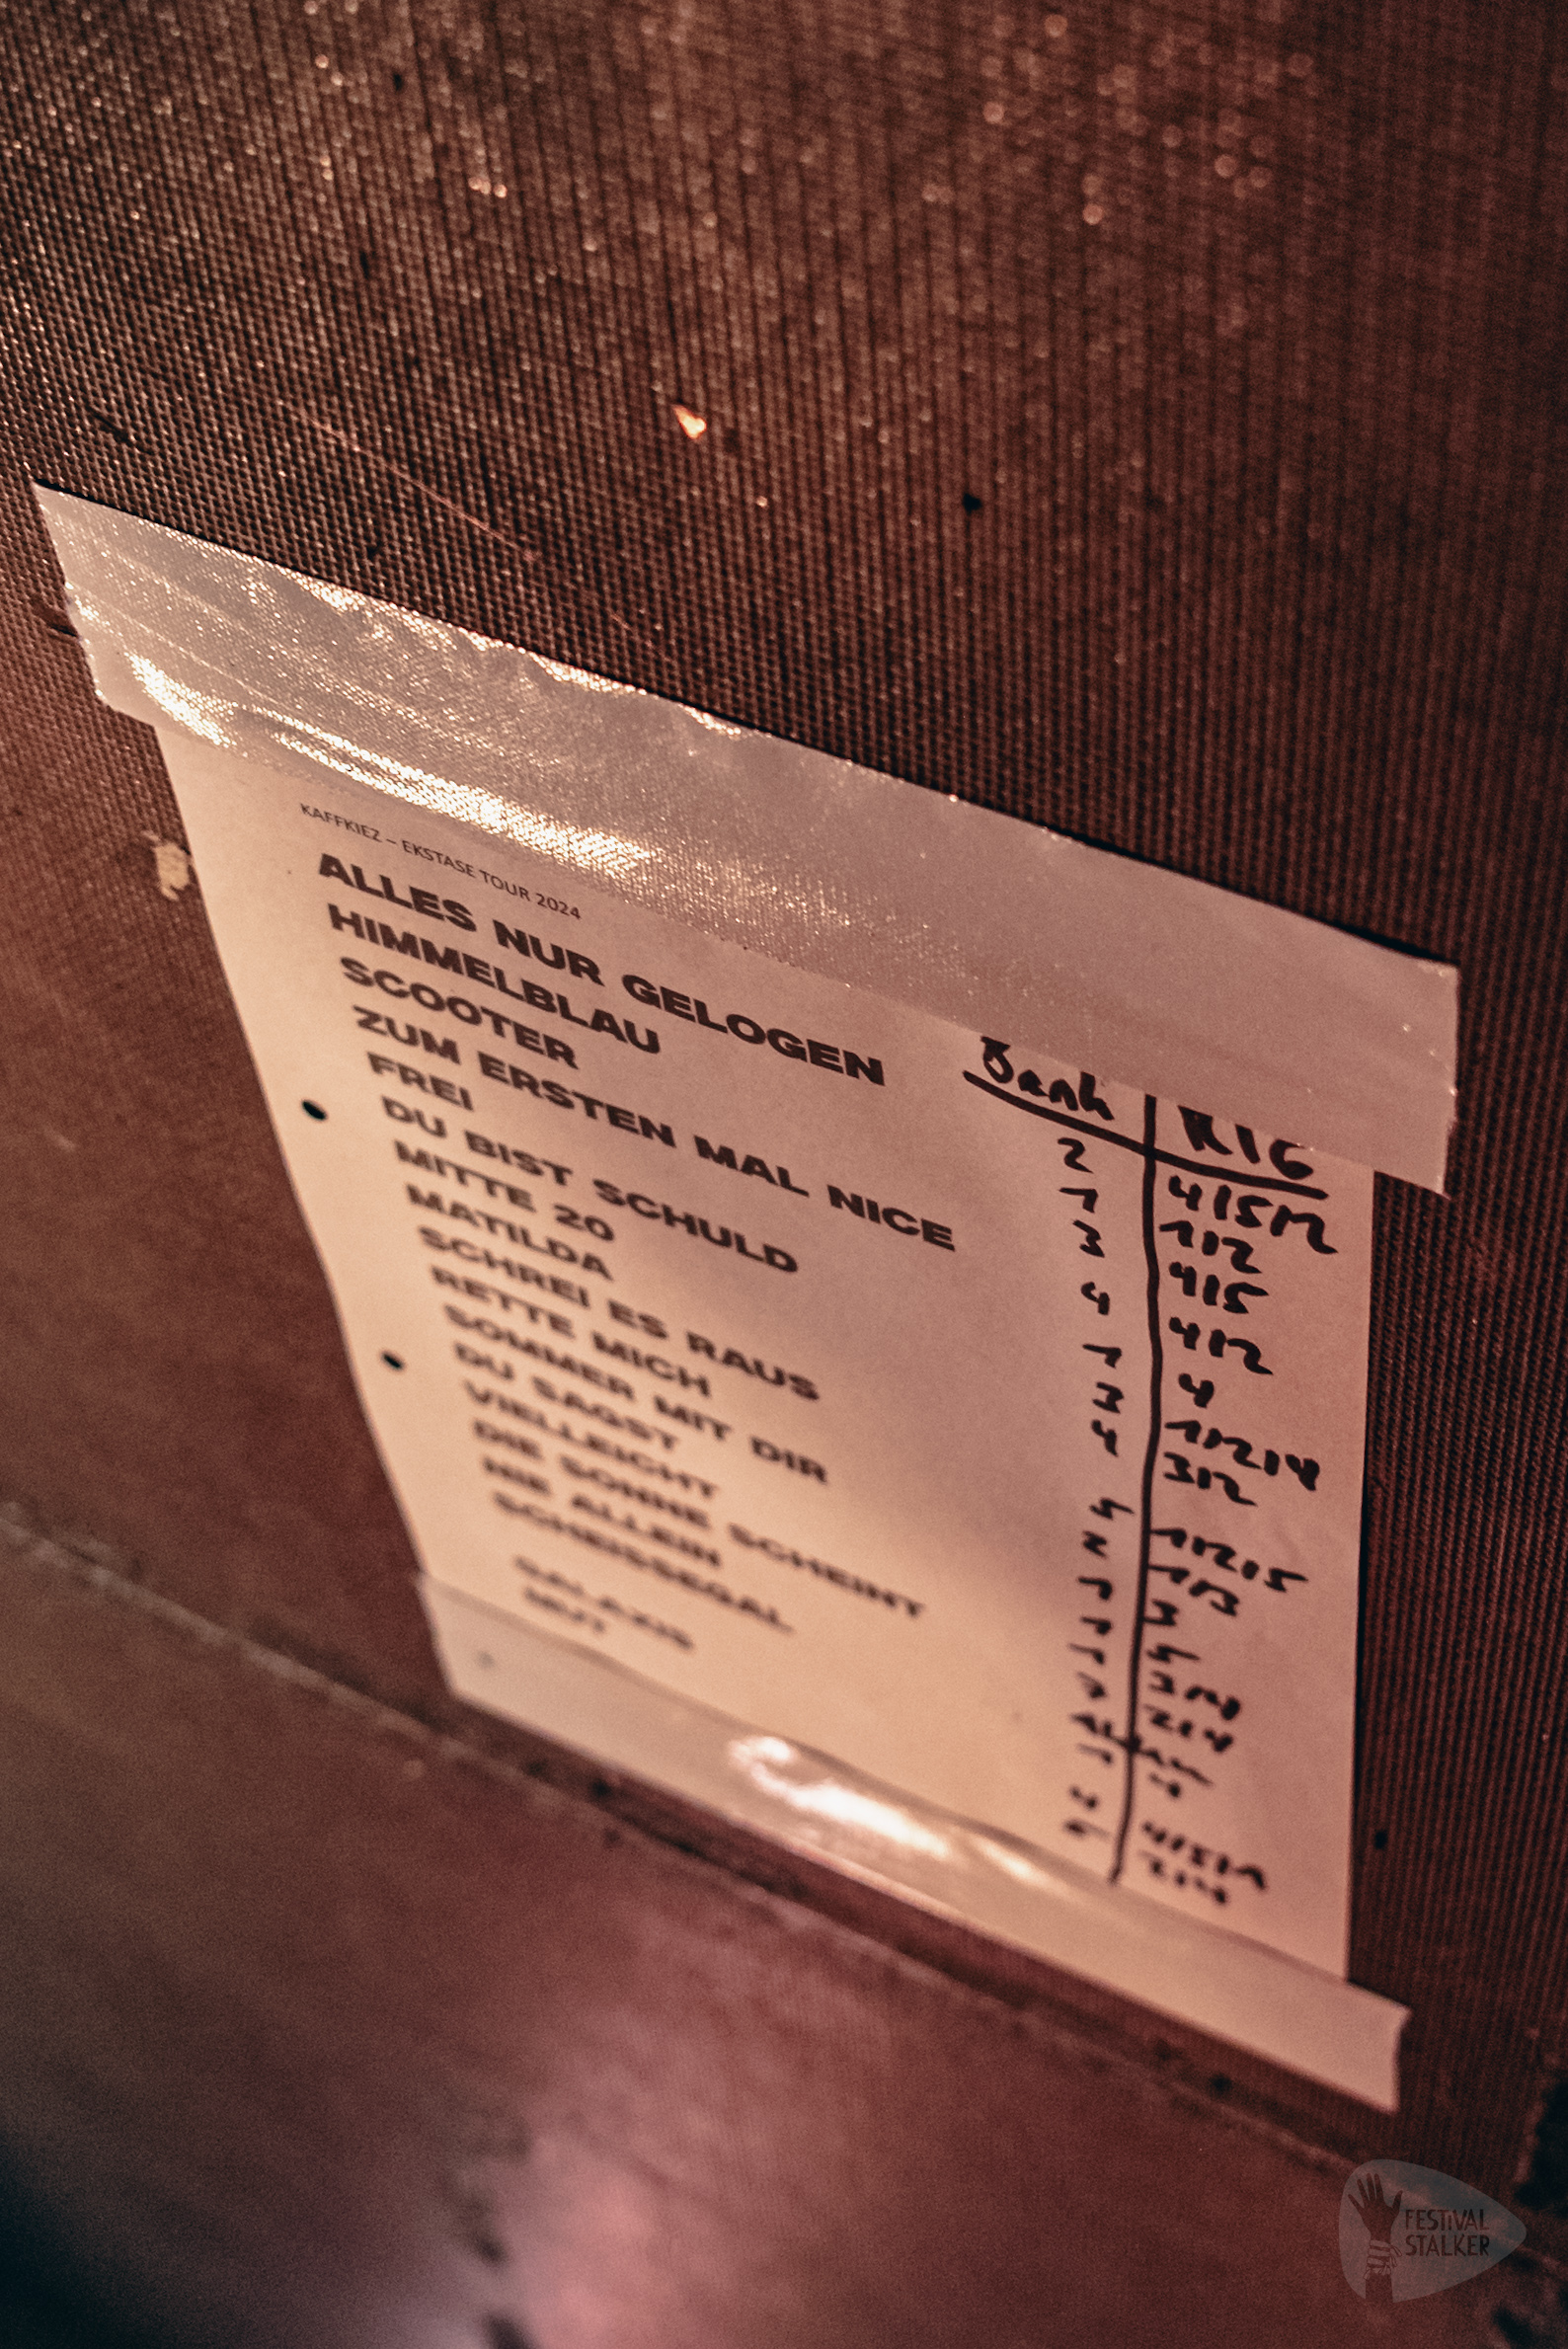 KAFFKIEZ – EKSTASE TOUR 2024
ALLES NUR GELOGEN
HIMMELBLAU
SCOOTER
ZUM ERSTEN MAL NICE
FREI
DU BIST SCHULD
MITTE 20
MATILDA
SCHREI ES RAUS
RETTE MICH
SOMMER MIT DIR
DU SAGST
VIELLEICHT
DIE SONNE SCHEINT
NIE ALLEIN
SCHEISSEGAL
GALAXIE
Bank RIG
2
1 112
3 415
4 412
1 4
3 11214
4 312
4 11215
FESTIVAL
STALKER